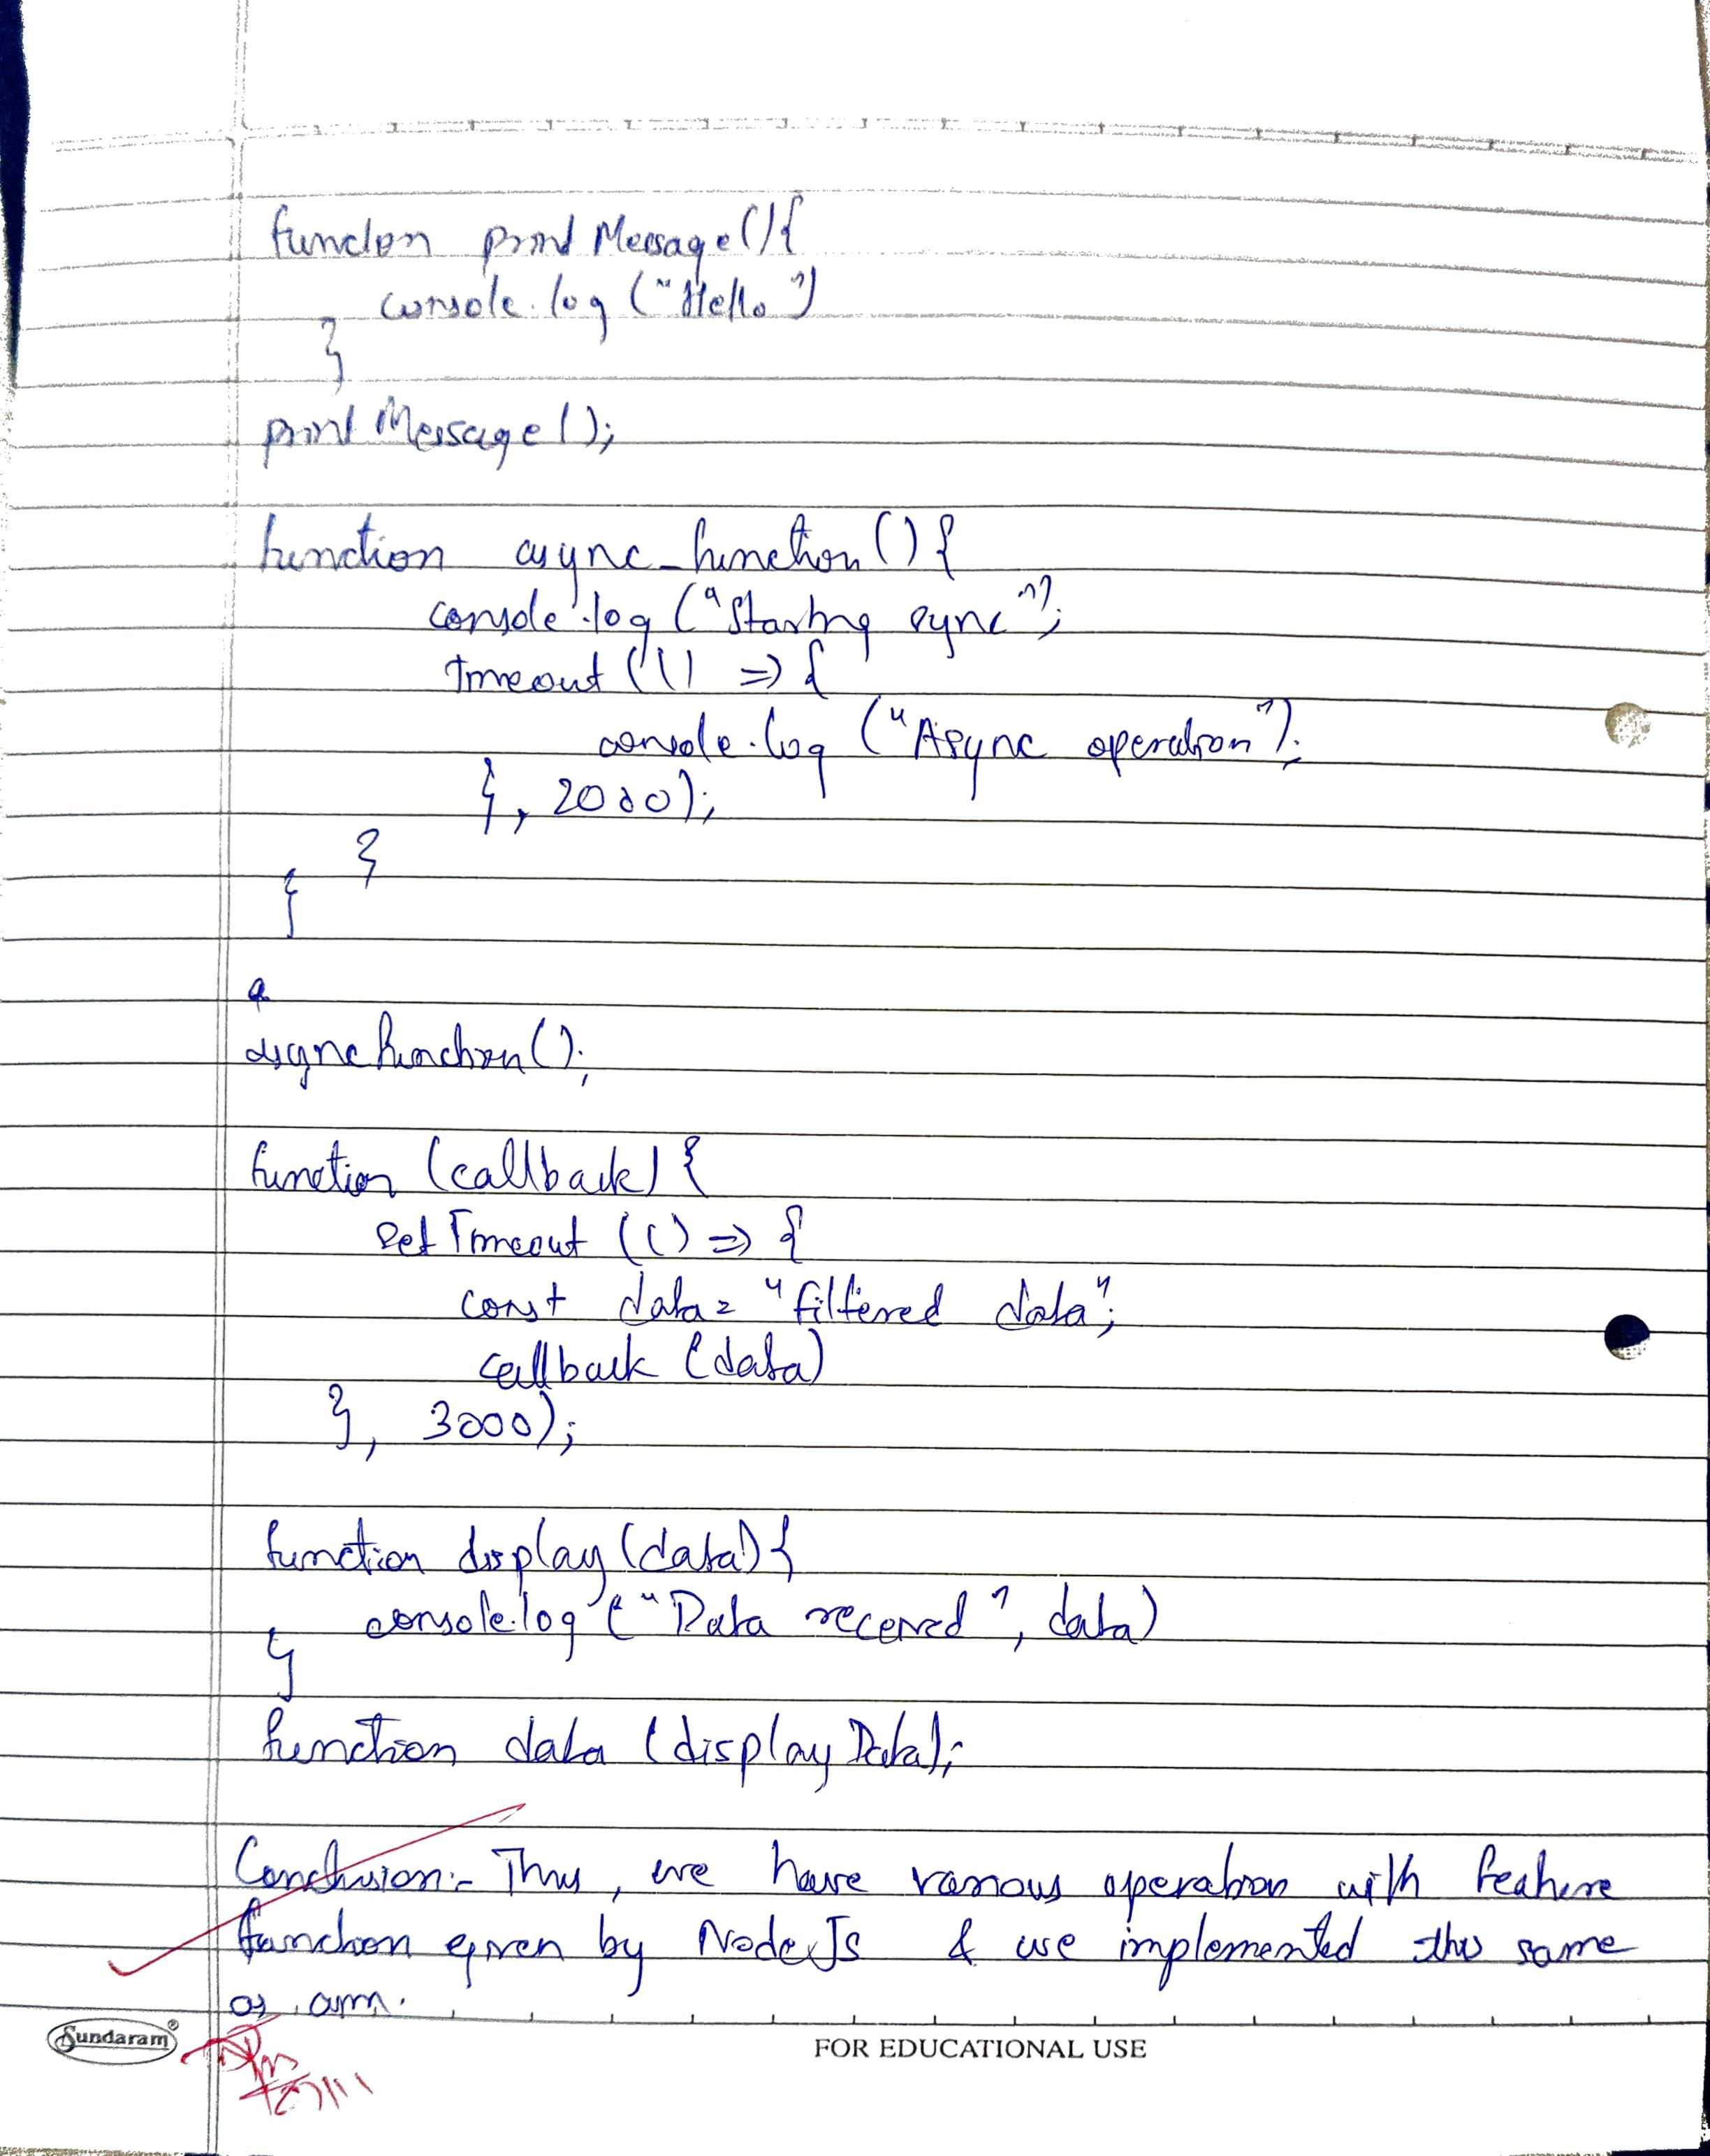 function printMessage(){
console.log ("Hello")
}
printMessage();
function async_function(){
console.log ("Starting sync");
Timeout (() => {
console.log ("Async operation");
}, 2000);
}
}
asyncfunction();
function (callback) {
setTimeout (() => {
const data = "filtered data";
callback (data)
}, 3000);
function display(data){
console.log ("Data received", data)
}
function data (displayData);
Conclusion:- Thus, we have various operation with feature
function given by NodeJs & we implemented the same
as aim.
Sundaram®
FOR EDUCATIONAL USE